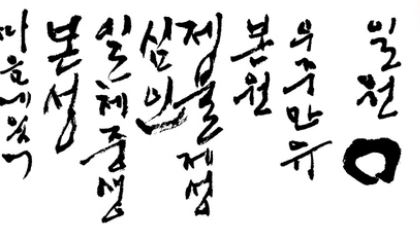 일원
우주만유
본원
제불제성
심인
일체중생
본성